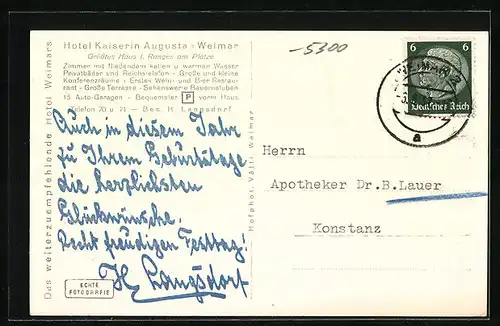 Hotel Kaiserin Augusta · Weimar
Größtes Haus I. Ranges am Platze
Zimmer mit fließendem kalten u. warmen Wasser
Privatbäder und Reichstelefon · Große und kleine
Konferenzräume · Erstes Wein- und Bier Restau-
rant · Große Terrasse · Sehenswerte Bauernstuben
15 Auto-Garagen · Bequemster P vorm Haus
Telefon 70 u. 71 · Bes. H. Langsdorf
Auch in diesem Jahr
zu Ihrem Geburtstage
die herzlichsten
Glückwünsche.
Recht freudigen Festtag!
H. Langsdorf
ECHTE
FOTOGRAFIE
Das weiterzuempfehlende Hotel Weimars
Hofphot. Vältl Weimar
-5300
6 6
Deutsches Reich
WEIMAR
a
Herrn
Apotheker Dr.B.Lauer
Konstanz